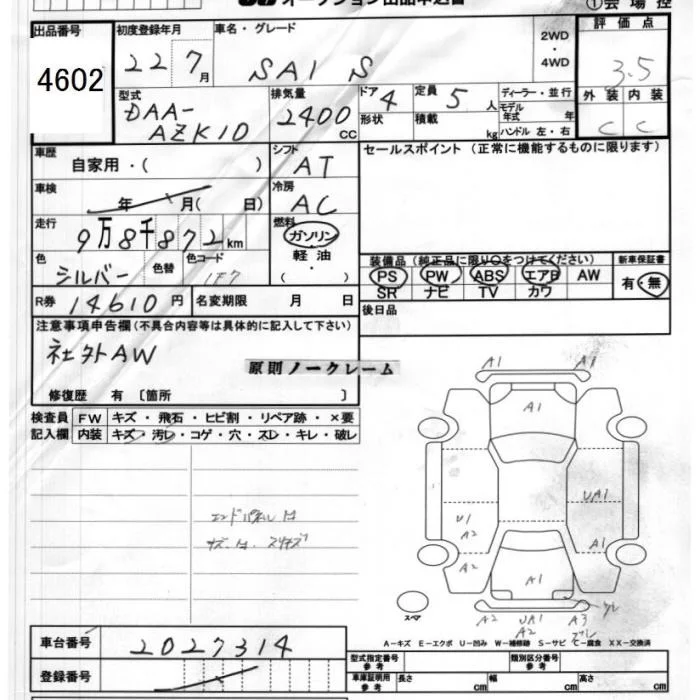 オークション出品申込書 ①会場控
出品番号 4602
初度登録年月 22 7月
車名・グレード SAI S
2WD・4WD
評価点 3.5
外装 内装
C C
型式 DAA-AZK10
排気量 2400 CC
ドア 4 形状
定員 5人 積載 kg
ディーラー・並行
モデル年式 年
ハンドル 左・右
車歴 自家用・( )
シフト AT
セールスポイント (正常に機能するものに限ります)
車検 年 月( 日)
冷房 AC
走行 9万8千872km
燃料 ガソリン 軽油 ( ・ )
色 シルバー 色替 色コード 1F7
装備品 (純正品に限り○をつけてください) 新車保証書
PS PW ABS エアB AW 有・無
SR ナビ TV カワ
R券 14610円 名変期限 月 日
後日品
注意事項申告欄 (不具合内容等は具体的に記入して下さい)
社外AW
原則ノークレーム
修復歴 有 〔箇所 〕
検査員 FW キズ・飛石・ヒビ割・リペア跡・×要
記入欄 内装 キズ・汚レ・コゲ・穴・スレ・キレ・破レ
A1 A1
A1
UA1
U1
A2
A1
A2
A1
スペア
A2 UA1 A3
A2
A−キズ E−エクボ U−凹み W−補修跡 S−サビ C−腐食 XX−交換済
車台番号 2027314
型式指定番号 参考 類別区分番号 参考
登録番号
車庫証明用 参考 長さ cm 幅 cm 高さ cm